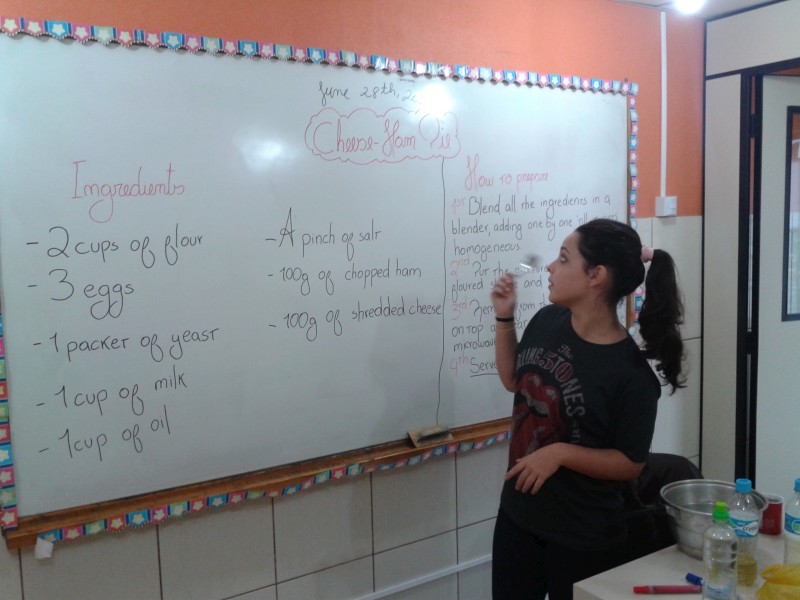 June 28th,
Cheese-Ham Pie
Ingredients
- 2 cups of flour
- 3 eggs
- 1 packet of yeast
- 1 cup of milk
- 1 cup of oil
- A pinch of salt
- 100g of chopped ham
- 100g of shredded cheese
How to prepare
Blend all the ingredients in a
blender, adding one by one
homogeneous
2nd Put the
floured and
3rd
on top
microwave
4th Serve
The
ROLLING STONES